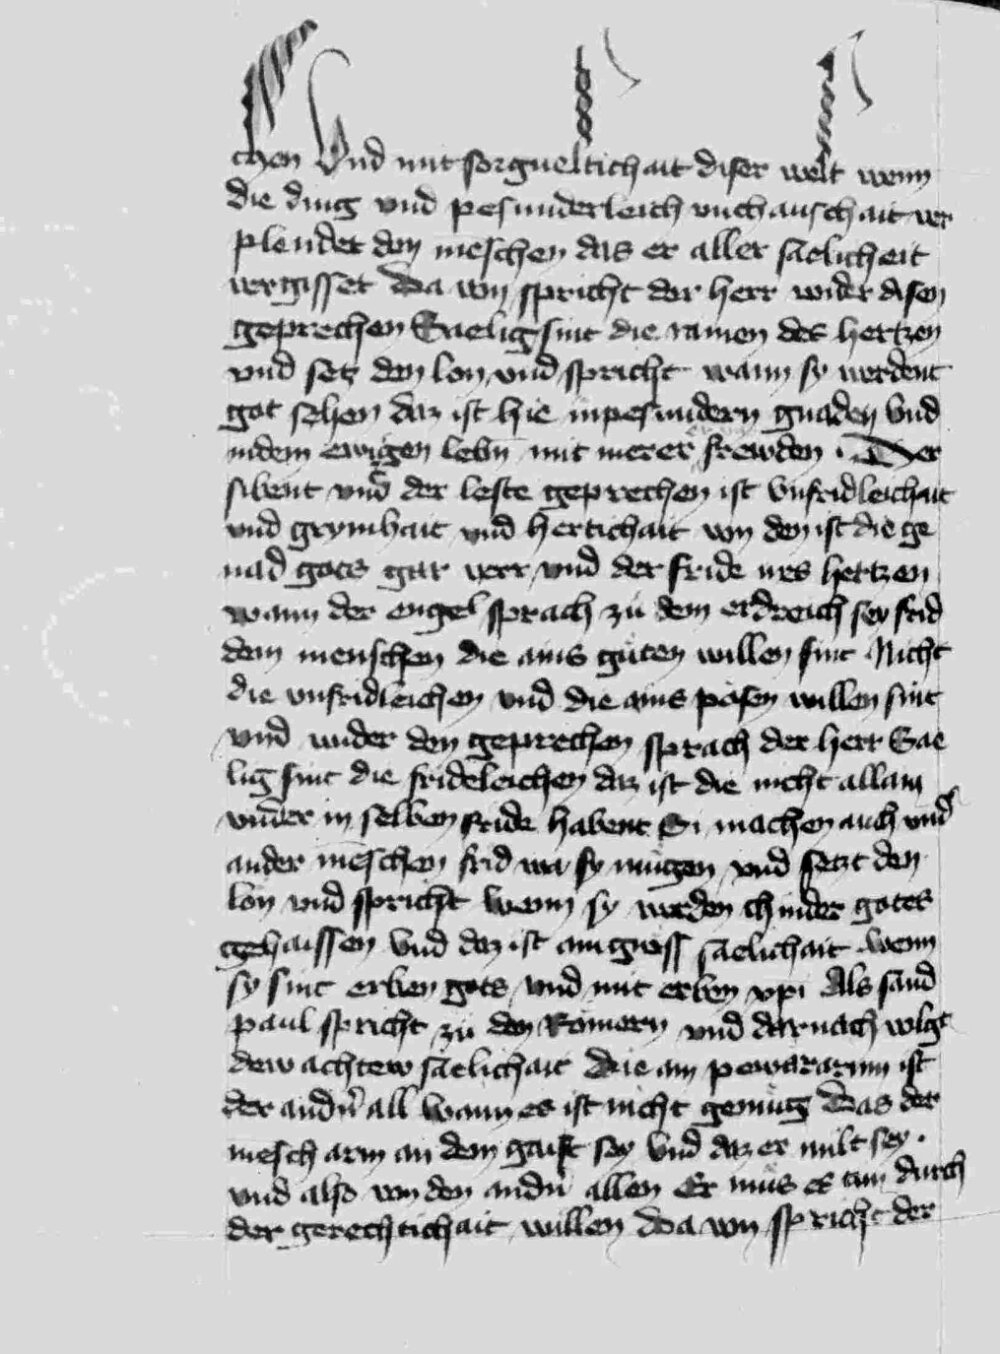 chen Vnd mit sorgueltichait diser welt wenn
die ding vnd pesunderleich vnchauschait ver
plendet den meschen das er aller saelicheit
vergisset Da von spricht der herr wider disen
geprechen Saelig sint die rainen des hertzen
vnd setz den lon vnd spricht wann sy werdent
got sehen daz ist hie inpesundern gnaden Vnd
indem ewigen lebn mit merer frewden . Der
sibent vnd der leste geprechen ist vnfridleichait
vnd grymhait vnd hertichait von den ist die ge
nad gotes gar verr vnd der fride irs hertzen
wann der engel sprach zu dem erdreich sey frid
dem menschen die ains guten willen sint Nicht
die vnfridleichen vnd die ains posen willen sint
vnd wider den geprechen sprach der herr Sae
lig sint die frideleichen daz ist die nicht allain
vnder in selben fride habent Si machen auch vnd
ander meschen frid wa sy mugen vnd setzt den
lon vnd spricht wenn sy werden chinder gotes
gehaissen Vnd daz ist ain gross saelichait wenn
sy sint erben gots vnd mit erben xpi Als sand
paul spricht zu den Romern vnd darnach volgt
dew achtew saelichait Die ain pewararinn ist
der andn all Wann es ist nicht genug Das der
mesch arm an dem gaist sey Vnd daz er milt sey .
vnd also von den andn allen Er mus es tun durch
der gerechtichait willen Da von spricht der